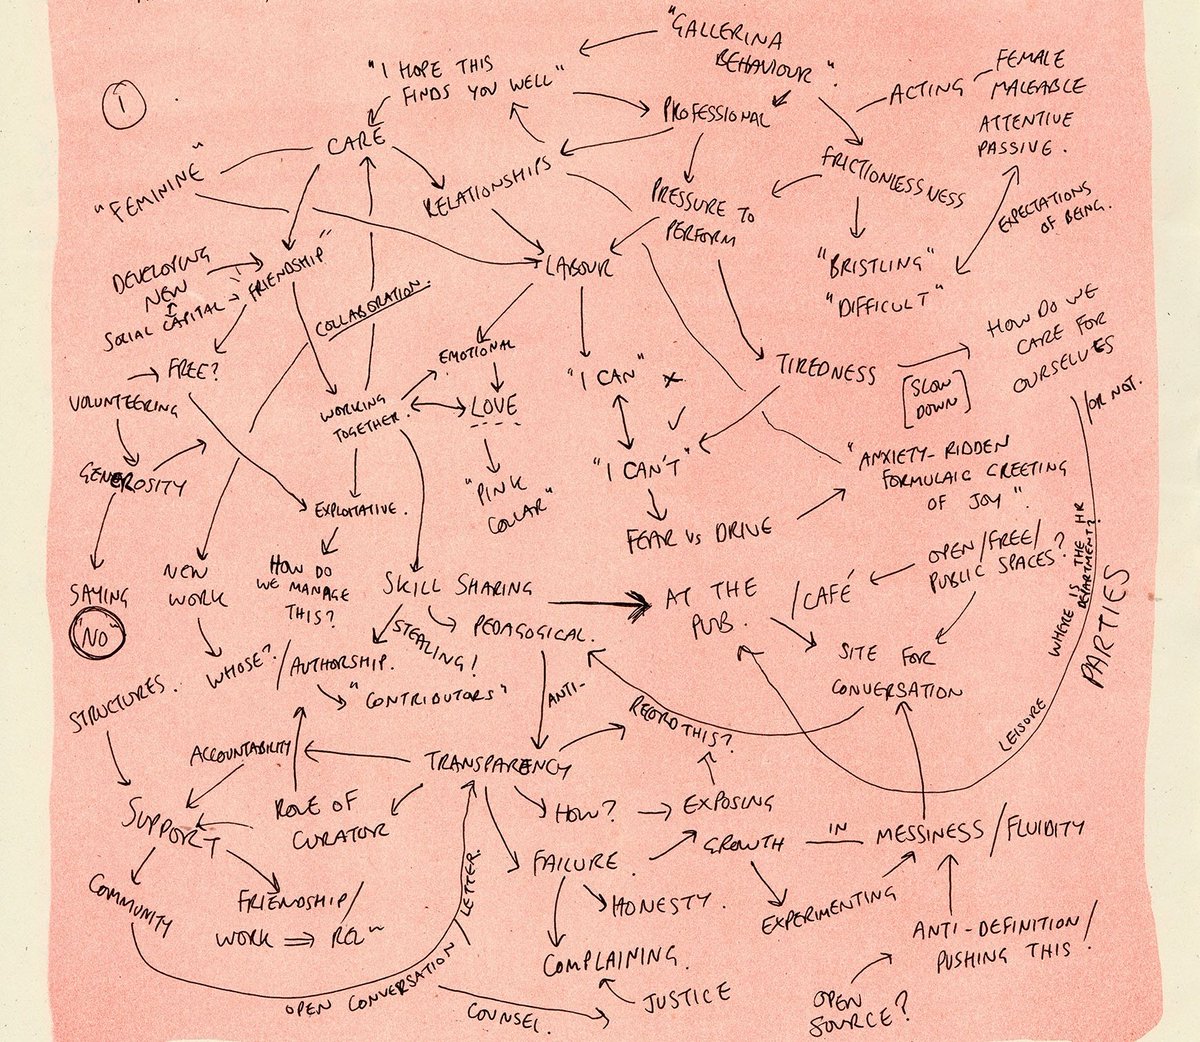 1
"GALLERINA
BEHAVIOUR".
"I HOPE THIS
FINDS YOU WELL"
ACTING
FEMALE
MALEABLE
ATTENTIVE
PASSIVE.
PROFESSIONAL
CARE
"FEMININE"
RELATIONSHIPS
FRICTIONLESSNESS
PRESSURE TO
PERFORM
EXPECTATIONS
OF BEING.
"BRISTLING"
"DIFFICULT"
LABOUR
DEVELOPING
NEW
SOCIAL CAPITAL
"FRIENDSHIP"
COLLABORATION.
HOW DO WE
CARE FOR
OURSELVES
/OR NOT.
TIREDNESS
[SLOW
DOWN]
FREE?
VOLUNTEERING
GENEROSITY
WORKING
TOGETHER.
EMOTIONAL
LOVE
"PINK
COLLAR"
"I CAN" x
✓
"I CAN'T"
FEAR VS DRIVE
"ANXIETY-RIDDEN
FORMULAIC GREETING
OF JOY".
EXPLOITATIVE.
SAYING
"NO"
NEW
WORK
HOW DO
WE MANAGE
THIS?
SKILL SHARING
STEALING!
PEDAGOGICAL.
AT THE
PUB.
/CAFÉ
OPEN/FREE/
PUBLIC SPACES?
SITE FOR
CONVERSATION
WHERE IS THE HR
DEPARTMENT?
PARTIES
LEISURE
STRUCTURES.
WHOSE?
/AUTHORSHIP.
"CONTRIBUTORS"
ANTI-
RECORD THIS?
ACCOUNTABILITY
TRANSPARENCY
SUPPORT
ROLE OF
CURATOR
HOW?
EXPOSING
GROWTH
IN
MESSINESS/FLUIDITY
FAILURE.
HONESTY.
EXPERIMENTING
COMMUNITY
FRIENDSHIP/
WORK ⇒
ANTI-DEFINITION/
PUSHING THIS.
COMPLAINING.
JUSTICE
OPEN CONVERSATION/LETTER.
COUNSEL.
OPEN
SOURCE?